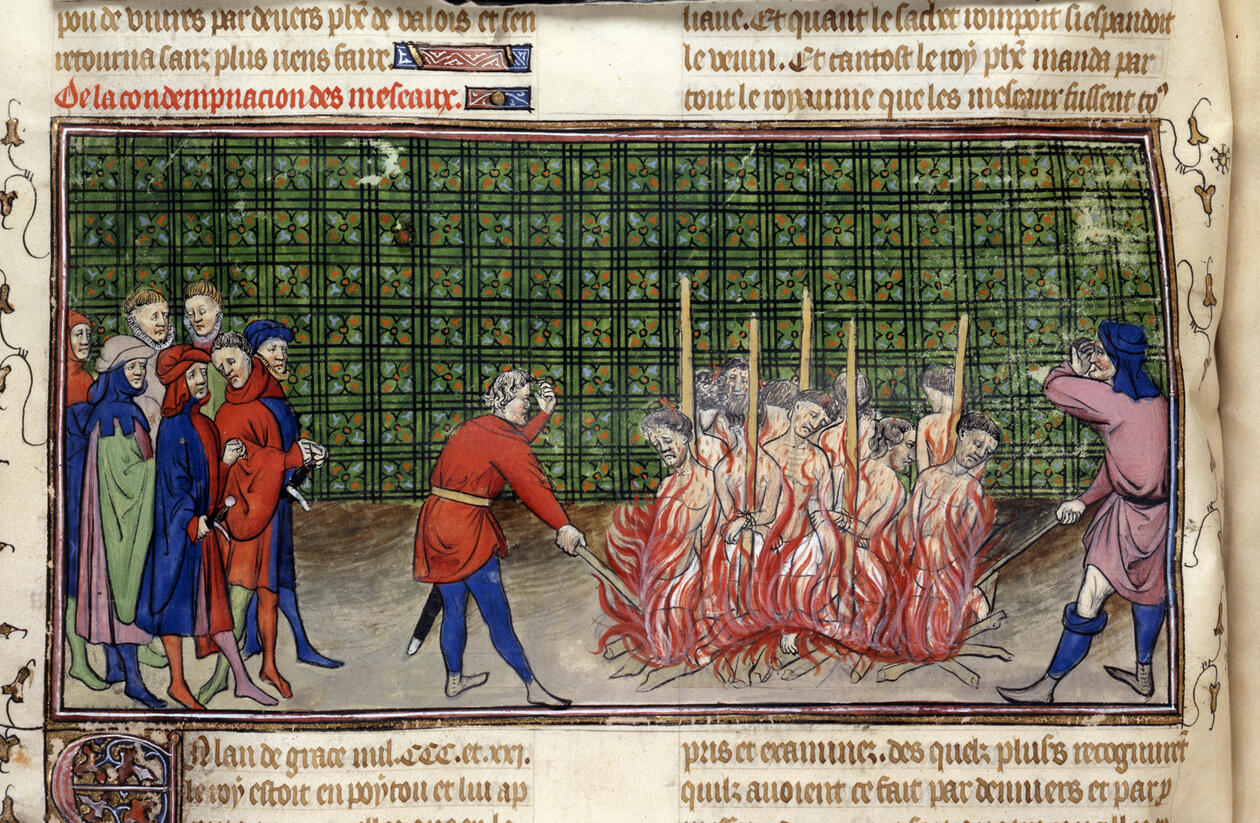 pou de viures par deuers phe de valois et sen
retourna sanz plus riens faire.
De la condempnacion des meseaux.
En lan de grace mil.CCC.et.xxj.
le roy estoit en poytou et lui ap
liaue. Et quant le sachet rompoit si espandoit
le venin. Et tantost le roy phe manda par
tout le royaume que les meseaux fussent
pris et examinez. des quelz plusrs recognurent
quilz auoient ce fait par denniers et par